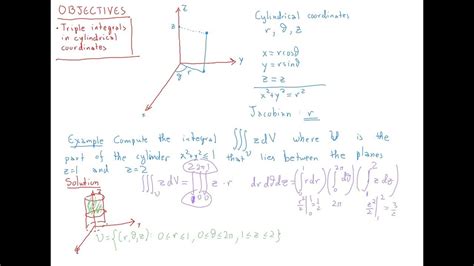 OBJECTIVES
• Triple integrals
in cylindrical
coordinates
z
y
x
ϑ r
Cylindrical coordinates
r, ϑ, z
x = r cosϑ
y = r sinϑ
z = z
x²+y² = r²
Jacobian: r
Example Compute the integral ∭_U z dV where U is the
part of the cylinder x²+y² ≤ 1 that lies between the planes
z=1 and z=2
Solution
∭_U z dV = ∫∫∫ z·r dr dϑ dz = (∫₀¹ r dr)(∫₀^2π dϑ)(∫₁² z dz)
r²/2 |₀¹ = 1/2 2π z²/2 |₁² = 3/2
U = {(r,ϑ,z): 0≤r≤1, 0≤ϑ≤2π, 1≤z≤2}